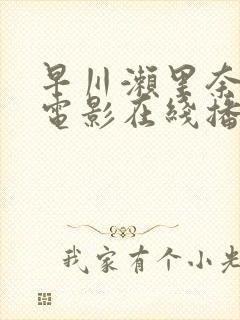 早川瀨里奈
電影在綫播
我家有个小羌